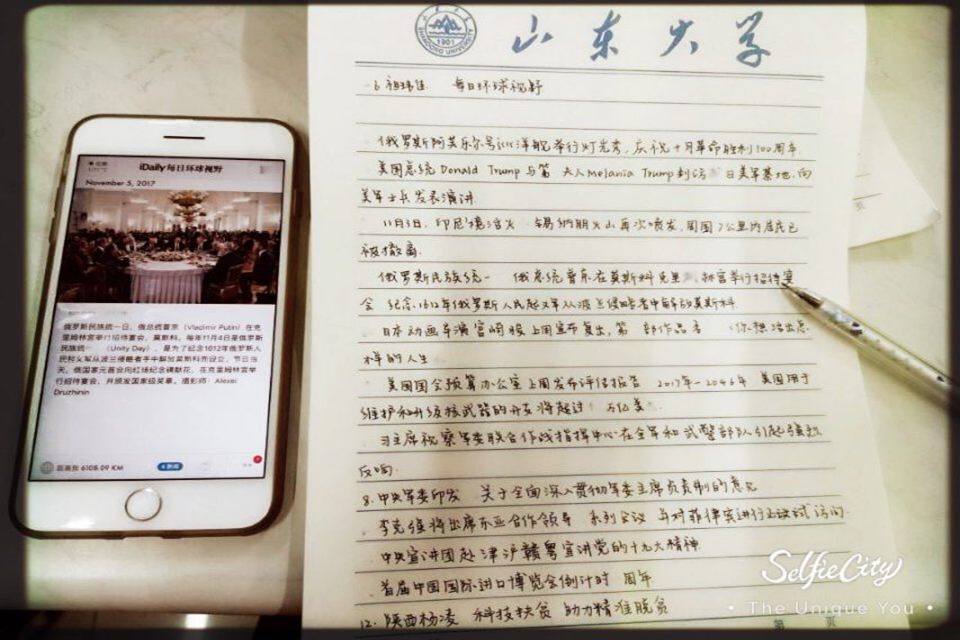 iDaily 每日环球视野
November 5, 2017
俄罗斯民族统一日，俄总统普京（Vladimir Putin）在克
里姆林宫举行招待宴会，莫斯科。每年11月4日是俄罗斯
民族统一 （Unity Day），是为了纪念1612年俄罗斯人
民和义军从波兰侵略者手中解放莫斯科而设立，节日当
天，俄国家元首会向红场纪念碑献花，在克里姆林宫举
行招待宴会，并颁发国家级奖章。摄影师：Alexei
Druzhinin
距离我 6108.09 KM
SHANDONG UNIVERSITY
1901
山东大学
每日环球视野
俄罗斯阿芙乐尔号巡洋舰举行灯光秀，庆祝十月革命胜利100周年
美国总统Donald Trump与第 夫人Melania Trump到访 日美军基地，向
美军士兵发表演讲
11月3日，印尼 活火 纳朋火山再次喷发，周围7公里内居民已
被撤离
俄罗斯民族统一 俄总统普京在莫斯科克里 林宫举行招待宴
会 纪念1612年俄罗斯人民起义军从波兰侵略者中解放莫斯科
日本动画导演宫崎骏上周宣布复出，第 部作品名 《你想活出怎
样的人生
美国国会预算办公室上周发布评估报告 2017年-2046年 美国用于
维护和升级核武器的开支将超过 万亿美
习主席视察军委联合作战指挥中心在全军和武警部队引起强烈
反响
8. 中央军委印发 关于全面深入贯彻军委主席负责制的意见
李克强将出席东亚合作领导 系列会议 并对菲律宾进行正式访问
中央宣讲团赴津沪赣粤宣讲党的十九大精神
首届中国国际进口博览会倒计时 周年
12. 陕西杨凌 科技扶贫 助力精准脱贫
第 页
SelfieCity
• The Unique You •